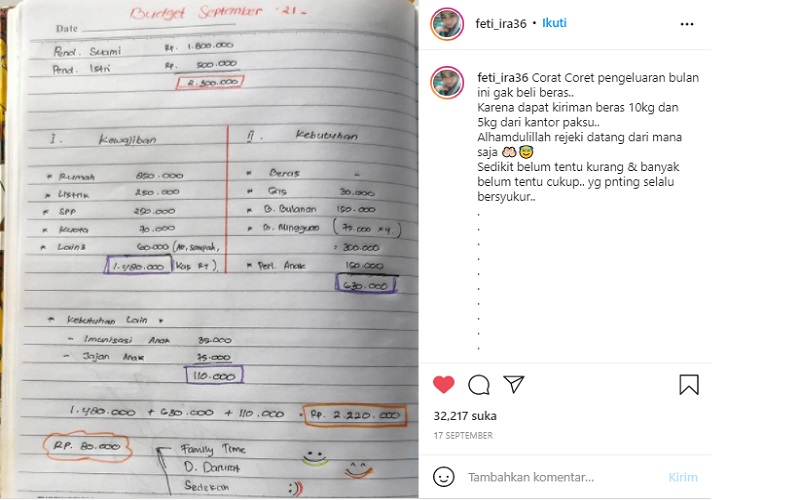 Budget September '21 -
Date
Pend. Suami Rp. 1.800.000
Pend. Istri Rp. 500.000
2.300.000
I. Kewajiban
* Rumah 850.000
* Listrik 250.000
* SPP 250.000
* Kuota 70.000
* Lain2 60.000 (Air, sampah,
1.480.000 Kas RT)
II. Kebutuhan
* Beras -
* Gas 30.000
* B. Bulanan 150.000
* B. Mingguan (75.000 x 4)
= 300.000
* Perl. Anak 150.000
630.000
* Kebutuhan Lain *
- Imunisasi Anak 35.000
- Jajan Anak 75.000
110.000
1.480.000 + 630.000 + 110.000 = Rp. 2.220.000
RP. 80.000
Family Time
D. Darurat
Sedekah
feti_ira36 • Ikuti
feti_ira36 Corat Coret pengeluaran bulan
ini gak beli beras..
Karena dapat kiriman beras 10kg dan
5kg dari kantor paksu..
Alhamdulillah rejeki datang dari mana
saja
Sedikit belum tentu kurang & banyak
belum tentu cukup.. yg pnting selalu
bersyukur..
.
.
.
.
.
.
.
.
.
.
32,217 suka
17 SEPTEMBER
Tambahkan komentar...
Kirim